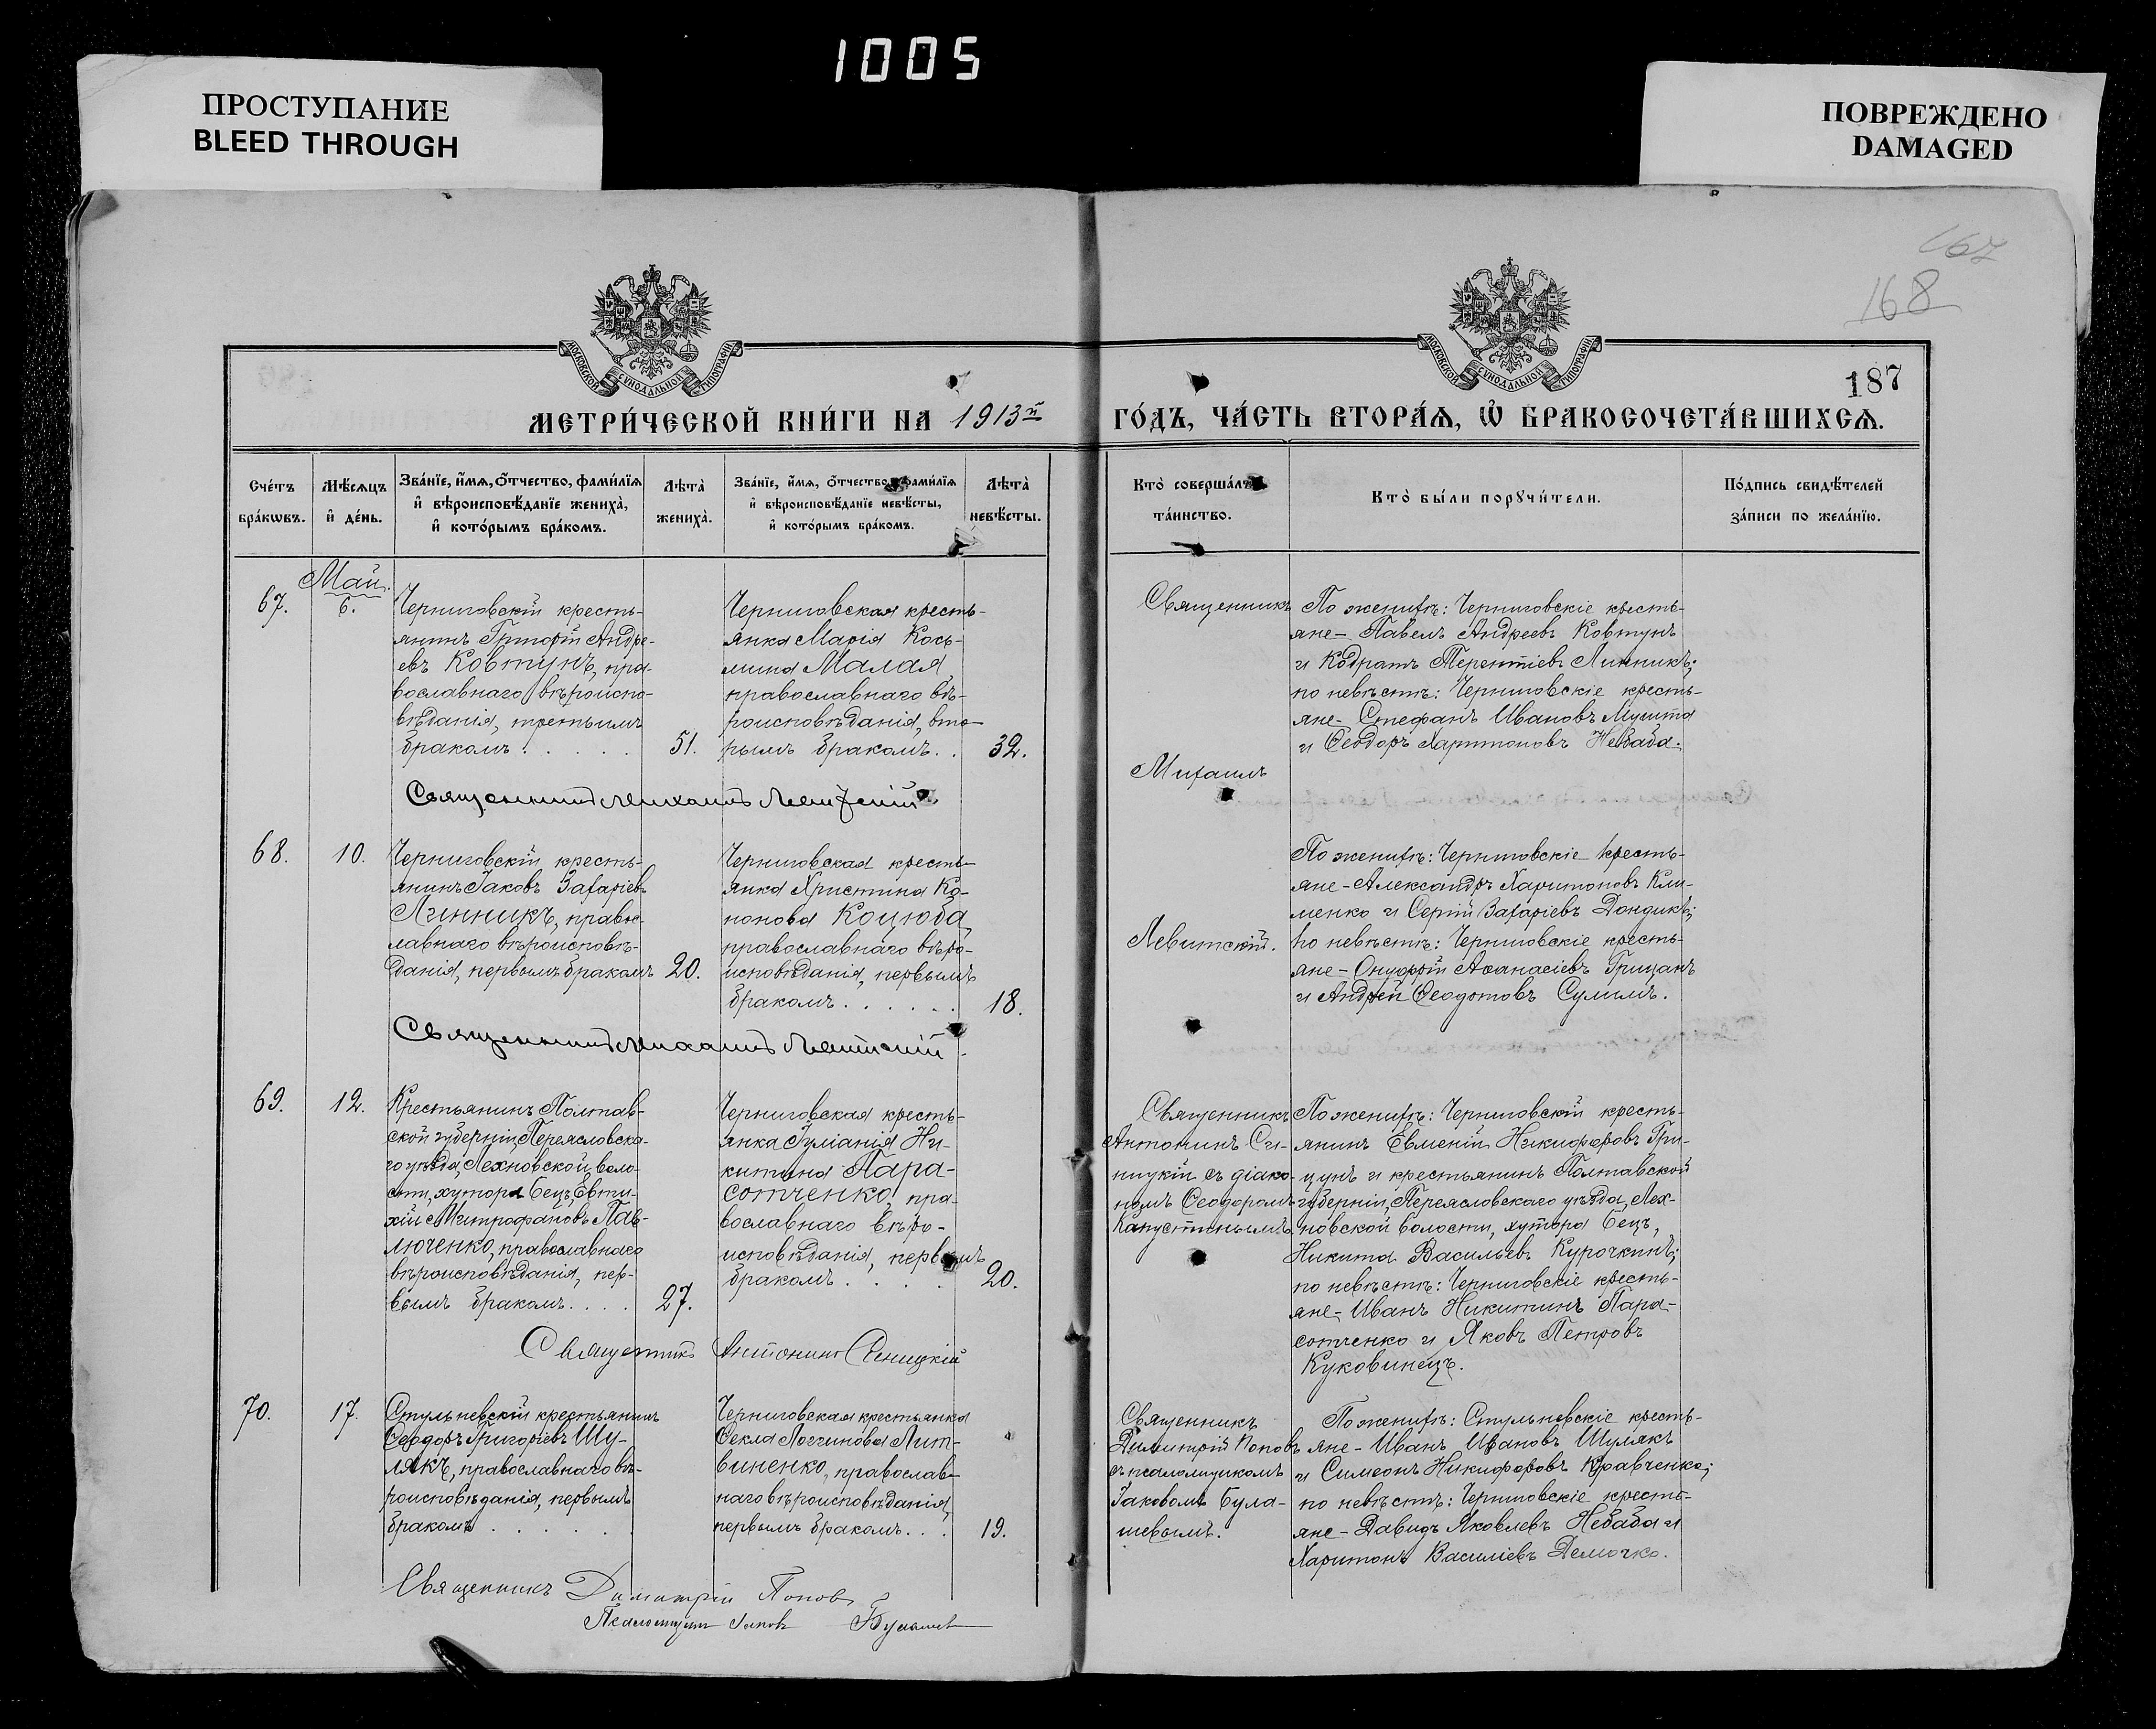 1005
ПРОСТУПАНИЕ
BLEED THROUGH
ПОВРЕЖДЕНО
DAMAGED
167
168
187
МОСКОВСКОЙ СѴНОДАЛЬНОЙ ТИПОГРАФІИ
МОСКОВСКОЙ СѴНОДАЛЬНОЙ ТИПОГРАФІИ
МЕТРИ́ЧЕСКОЙ КНИ́ГИ НА 1913й ГО́ДЪ, ЧА́СТЬ ВТОРА́Ѧ, Ѽ БРАКОСОЧЕТА́ВШИХСѦ.
Сче́тъ
бра́кѡвъ.
Мѣ́сяцъ
и҆ де́нь.
Зва́нїе, и҆́мѧ, ѻ҆́тчество, фами́лїѧ
и҆ вѣроисповѣ́данїе жениха̀,
и҆ кото́рымъ бра́комъ.
Лѣта̀
жениха̀.
Зва́нїе, и҆́мѧ, ѻ҆́тчество, фами́лїѧ
и҆ вѣроисповѣ́данїе невѣ́сты,
и҆ кото́рымъ бра́комъ.
Лѣта̀
невѣ́сты.
Кто̀ соверша́лъ
та́инство.
Кто̀ бы́ли порꙋчи́тели.
По́дпись свидѣ́телей
за́писи по жела́нїю.
Май.
67.
6.
Черниговскій кресть-
янинъ Григорій Андре-
евъ Ковтунъ, пра-
вославнаго вѣроиспо-
вѣданія, третьимъ
бракомъ . . . . .
51.
Черниговская кресть-
янка Марія Кось-
мина Малая,
православнаго вѣ-
роисповѣданія, вто-
рымъ бракомъ. .
32.
Священникъ
Михаилъ
По женихѣ: Черниговскіе кресть-
яне - Павелъ Андреевъ Ковтунъ
и Кодратъ Терентіевъ Линникъ;
по невѣстѣ: Черниговскіе кресть-
яне - Стефанъ Ивановъ Мушта
и Ѳеодоръ Харитоновъ Небаба.
Священникъ Михаилъ Левитскій
68.
10.
Черниговскій кресть-
янинъ Іаковъ Захаріевъ
Линникъ, правос-
лавнаго вѣроисповѣ-
данія, первымъ бракомъ
20.
Черниговская кресть-
янка Христина Ко-
нонова Коцюба,
православнаго вѣро-
исповѣданія, первымъ
бракомъ . . . . . .
18.
Левитскій.
По женихѣ: Черниговскіе кресть-
яне - Александръ Харитоновъ Кли-
менко и Сергій Захаріевъ Дондикъ;
по невѣстѣ: Черниговскіе кресть-
яне - Онуфрій Аѳанасіевъ Грицанъ
и Андрей Ѳеодотовъ Сулимъ.
Священникъ Михаилъ Левитскій.
69.
12.
Крестьянинъ Полтав-
ской губерніи, Переясловска-
го уѣзда, Лехновской воло-
сти, хутора Бецъ, Евти-
хій Митрофановъ Пав-
люченко, православнаго
вѣроисповѣданія, пер-
вымъ бракомъ. . . .
27.
Черниговская кресть-
янка Іуліанія Ни-
китина Пара-
сотченко, пра-
вославнаго вѣро-
исповѣданія, первымъ
бракомъ . . . .
20.
Священникъ
Антонинъ Си-
ницкій съ діако-
номъ Ѳеодоромъ
Капустинымъ.
По женихѣ: Черниговскій кресть-
янинъ Евменій Никифоровъ Гри-
цунъ и крестьянинъ Полтавской
губерніи, Переясловскаго уѣзда, Лех-
новской волости, хутора Бецъ,
Никита Васильевъ Курочкинъ;
по невѣстѣ: Черниговскіе кресть-
яне - Иванъ Никитинъ Пара-
сотченко и Яковъ Петровъ
Куковинецъ.
Священникъ Антонинъ Синицкій
70.
17.
Стульневскій крестьянинъ
Ѳеодоръ Григоріевъ Шу-
лякъ, православнаго вѣ-
роисповѣданія, первымъ
бракомъ . . . . . .
Черниговская крестьянка
Ѳекла Логгинова Лит-
виненко, православ-
наго вѣроисповѣданія,
первымъ бракомъ. . .
19.
Священникъ
Димитрій Поповъ
съ псаломщикомъ
Іаковомъ Була-
шевымъ.
По женихѣ: Стульневскіе кресть-
яне - Иванъ Ивановъ Шулякъ
и Симеонъ Никифоровъ Кравченко;
по невѣстѣ: Черниговскіе кресть-
яне - Давидъ Яковлевъ Небаба и
Харитонъ Василіевъ Демочко.
Священникъ Димитрій Поповъ
Псаломщикъ Іаковъ Булашевъ